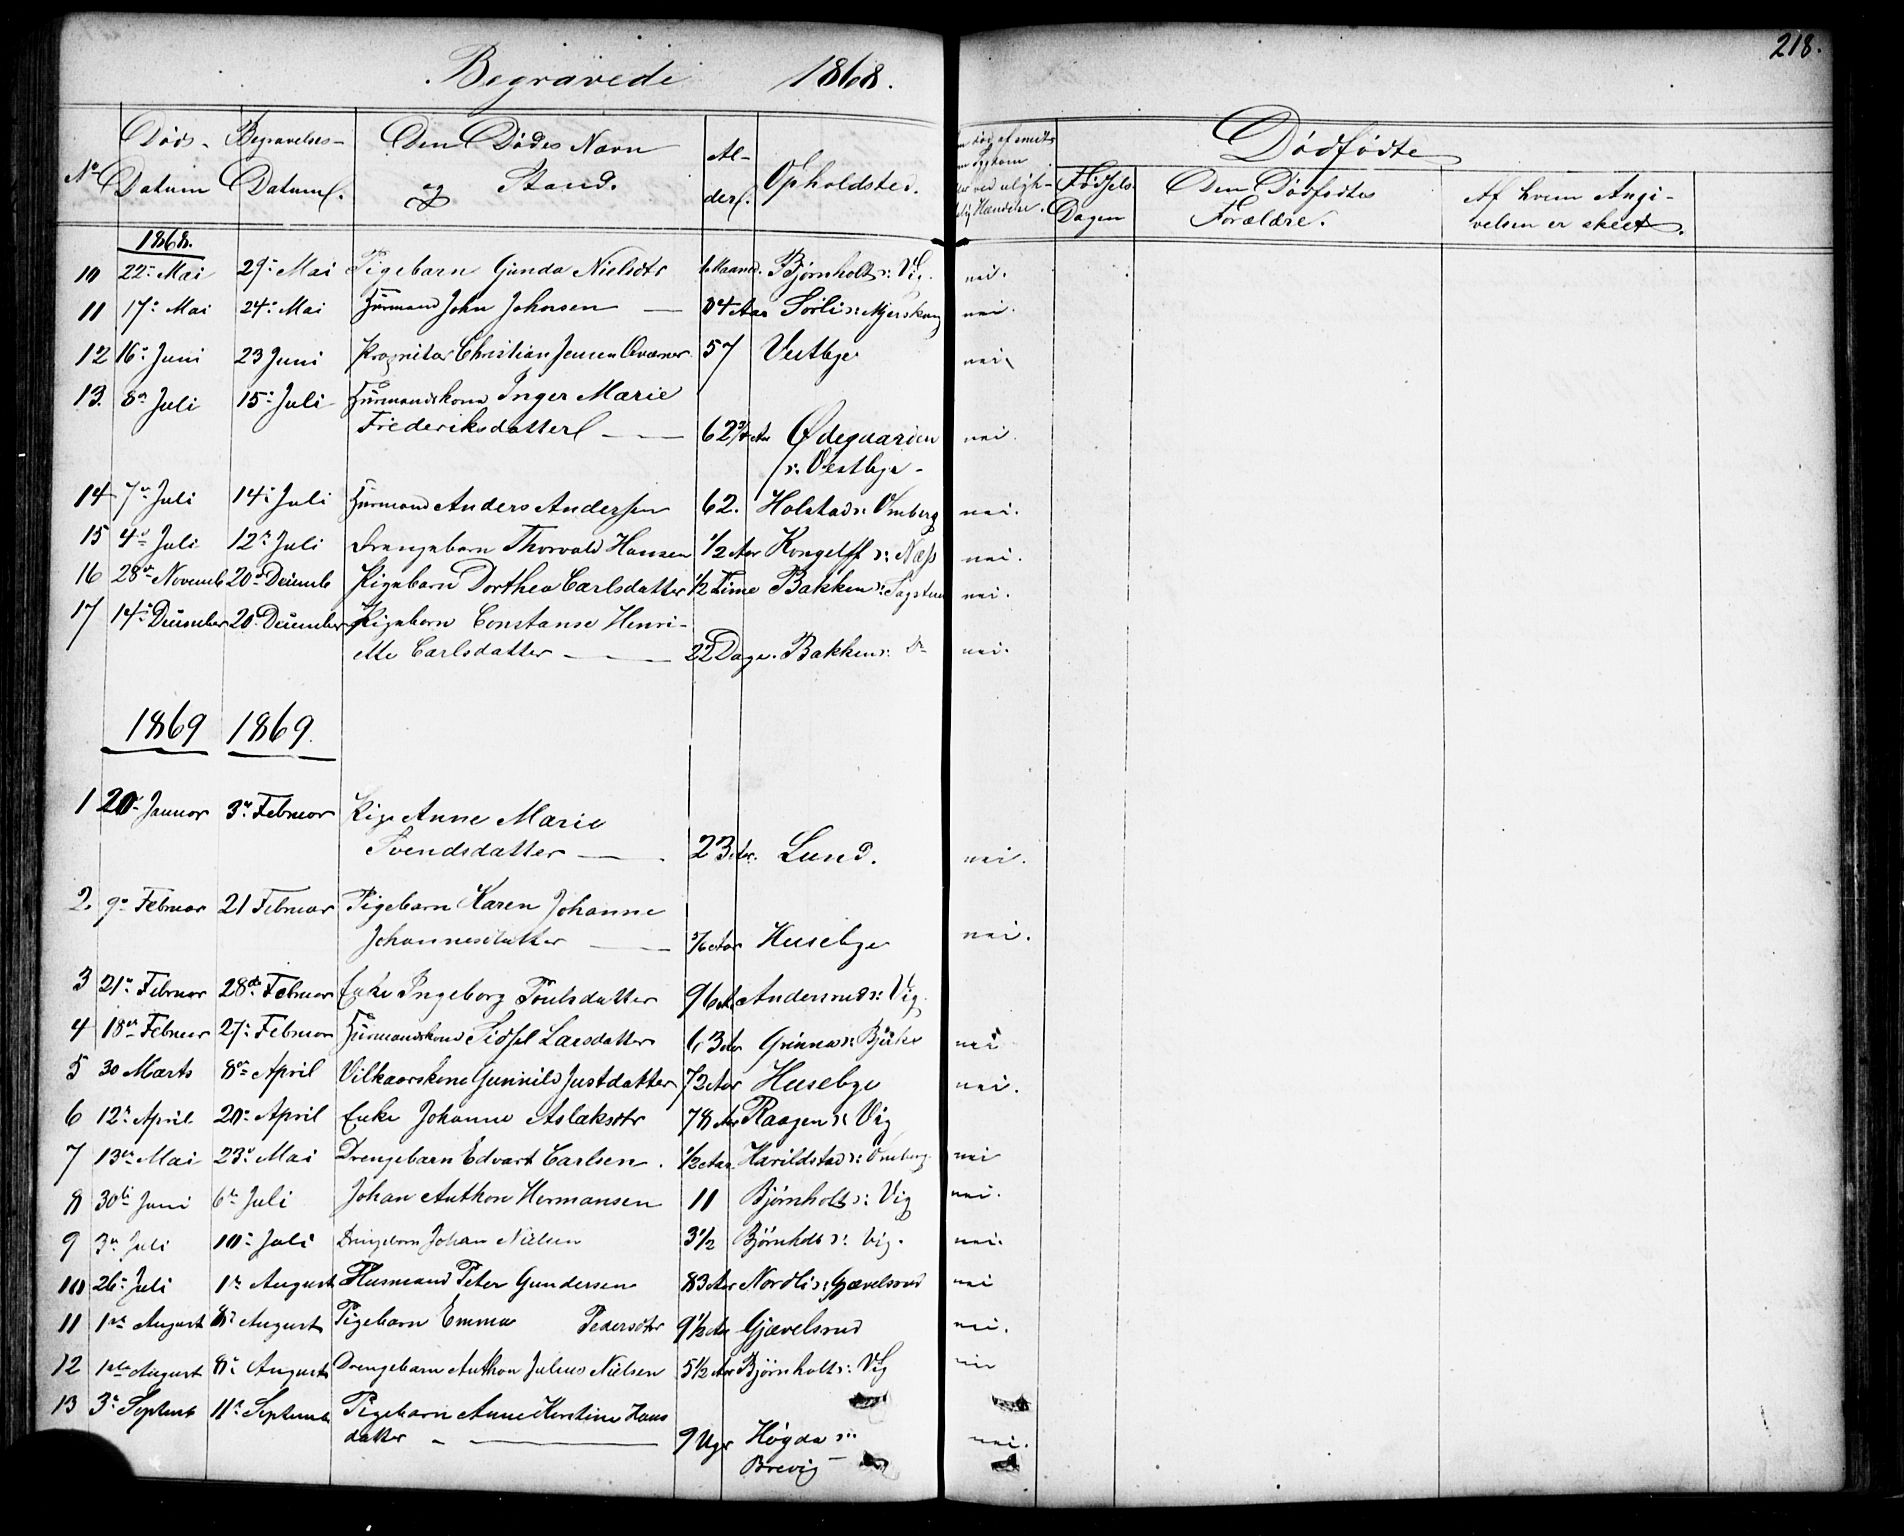 218.
Begravede 1868.
No
Døds-Datum
Begravelses-Datum.
Den Dødes Navn og Stand.
Al-der.
Opholdsted.
Dødfødte
Fødsels Dagen
Den Dødfødtes Forældre.
Af hvem Angi-velsen er skeet.
1868.
10 22de Mai 29de Mai Pigebarn Gunda Nielsdtr Maaned. Bjørnholt s: Vig. nei.
11 17de Mai 24de Mai Huusmand John Johnsen — 84 Aar Sørli s: nei.
12 16de Juni 23 Juni Proprietær Christian Jensen 57 Vestbye nei
13. 8de Juli 15de Juli Huusmandskone Inger Marie
Frederiksdatter — 62 Aar Ødegaarden nei.
s: Vestbye
14 7de Juli 14de Juli Huusmand Anders Andersen 62. Holstad s: Omberg nei.
15 4de Juli 12te Juli Drengebarn Thorvald Hansen 1/2 Aar Kongelff s: Næss nei.
16 28de Novemb 20de Decemb Pigebarn Dorthea Carlsdatter 1/2 Time Bakken s: nei.
17 14de December 20 December Pigebarn Constanse Henri-
ette Carlsdatter — 22 Dage. Bakken s: Do nei.
1869 1869.
1 20de Januar 3de Februar Pige Anne Marie
Svendsdatter — 23 Aar. Lund. nei.
2. 9de Februar 21 Februar Pigebarn Karen Johanne
Johannesdatter — 5/6 Aar Husebye nei.
3 21de Februar 28de Februar Enke Ingeborg Poulsdatter 96 Aar Andersrud s: Vig.
4 18de Februar 27de Februar Huusmandskone Sidsel Larsdatter 63 Aar nei
5 30 Marts 8de April Vilkaarskone Gunnild Justdatter 72 Aar Husebye nei.
6 12te April 20de April Enke Johanne Aslaksdtr 78 Aar Raagen s: Vig
7 13de Mai 23de Mai Drengebarn Edvart Carlsen. 1/2 Aar Harildstad s: Omberg. nei
8 30te Juni 6te Juli Johan Anthon Hermansen 11 Bjørnholt s: Vig nei.
9 3de Juli 10de Juli Drengebarn Johan Nielsen 3 1/2 Bjørnholt s: Vig. nei.
10 26de Juli 1te August Husmand Peter Gundersen 83 Aar Nordli s: Gjævelsrud nei
11 1ste August 8de August Pigebarn Emma Pedersdtr 9 1/2 Aar Gjævelsrud nei.
12 1ste August 8de August Drengebarn Anthon Julius Nielsen 5 1/2 Aar Bjørnholt s: Vig nei
13 3de Septemb 11te Septemb Pigebarn Anne Kerstine Hans
datter — 9 Uger Høgda s: nei.
Brevig